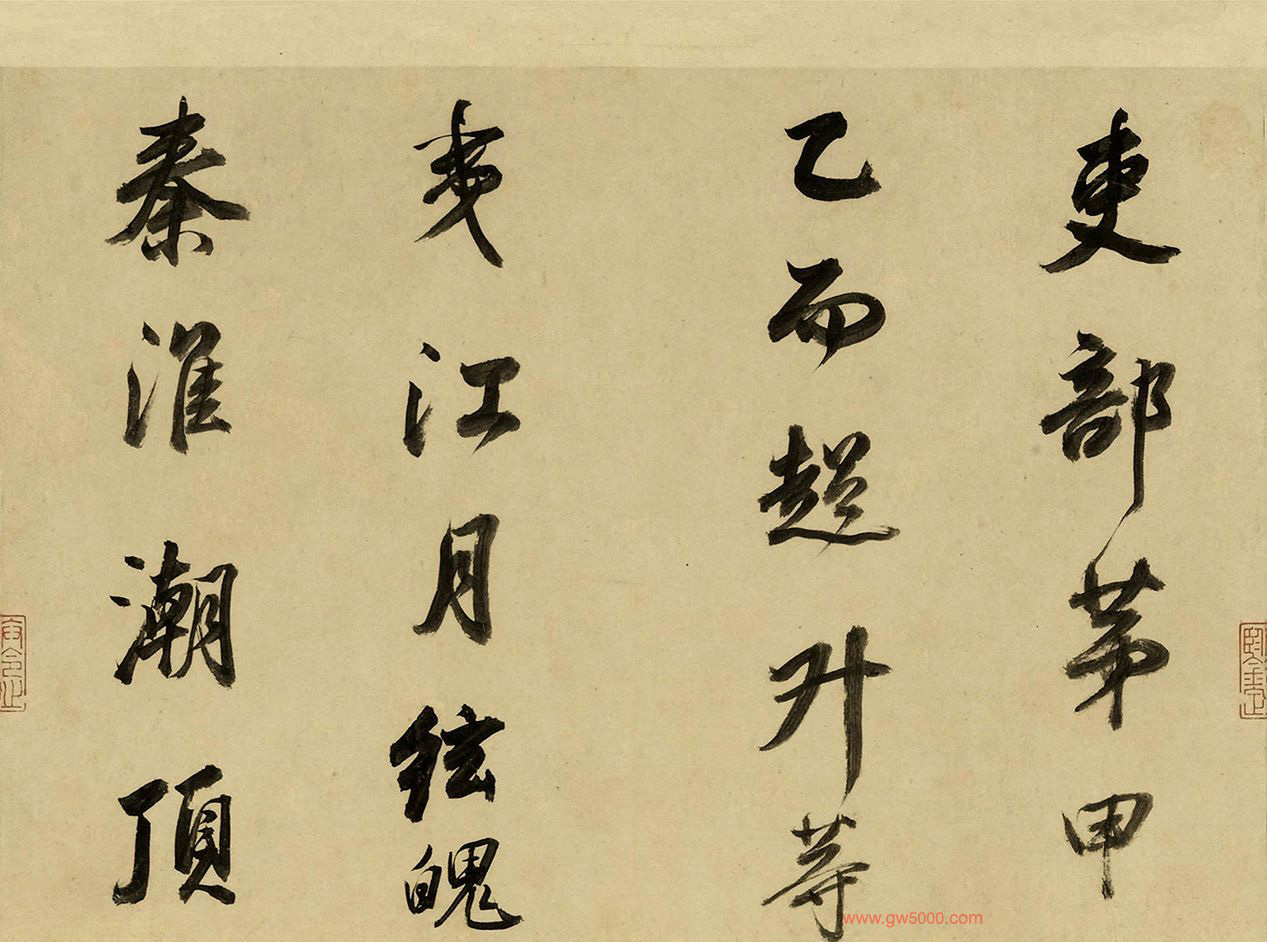 吏部第甲
乙而超升等
夷江月弦魄
秦淮潮頂
www.gw5000.com